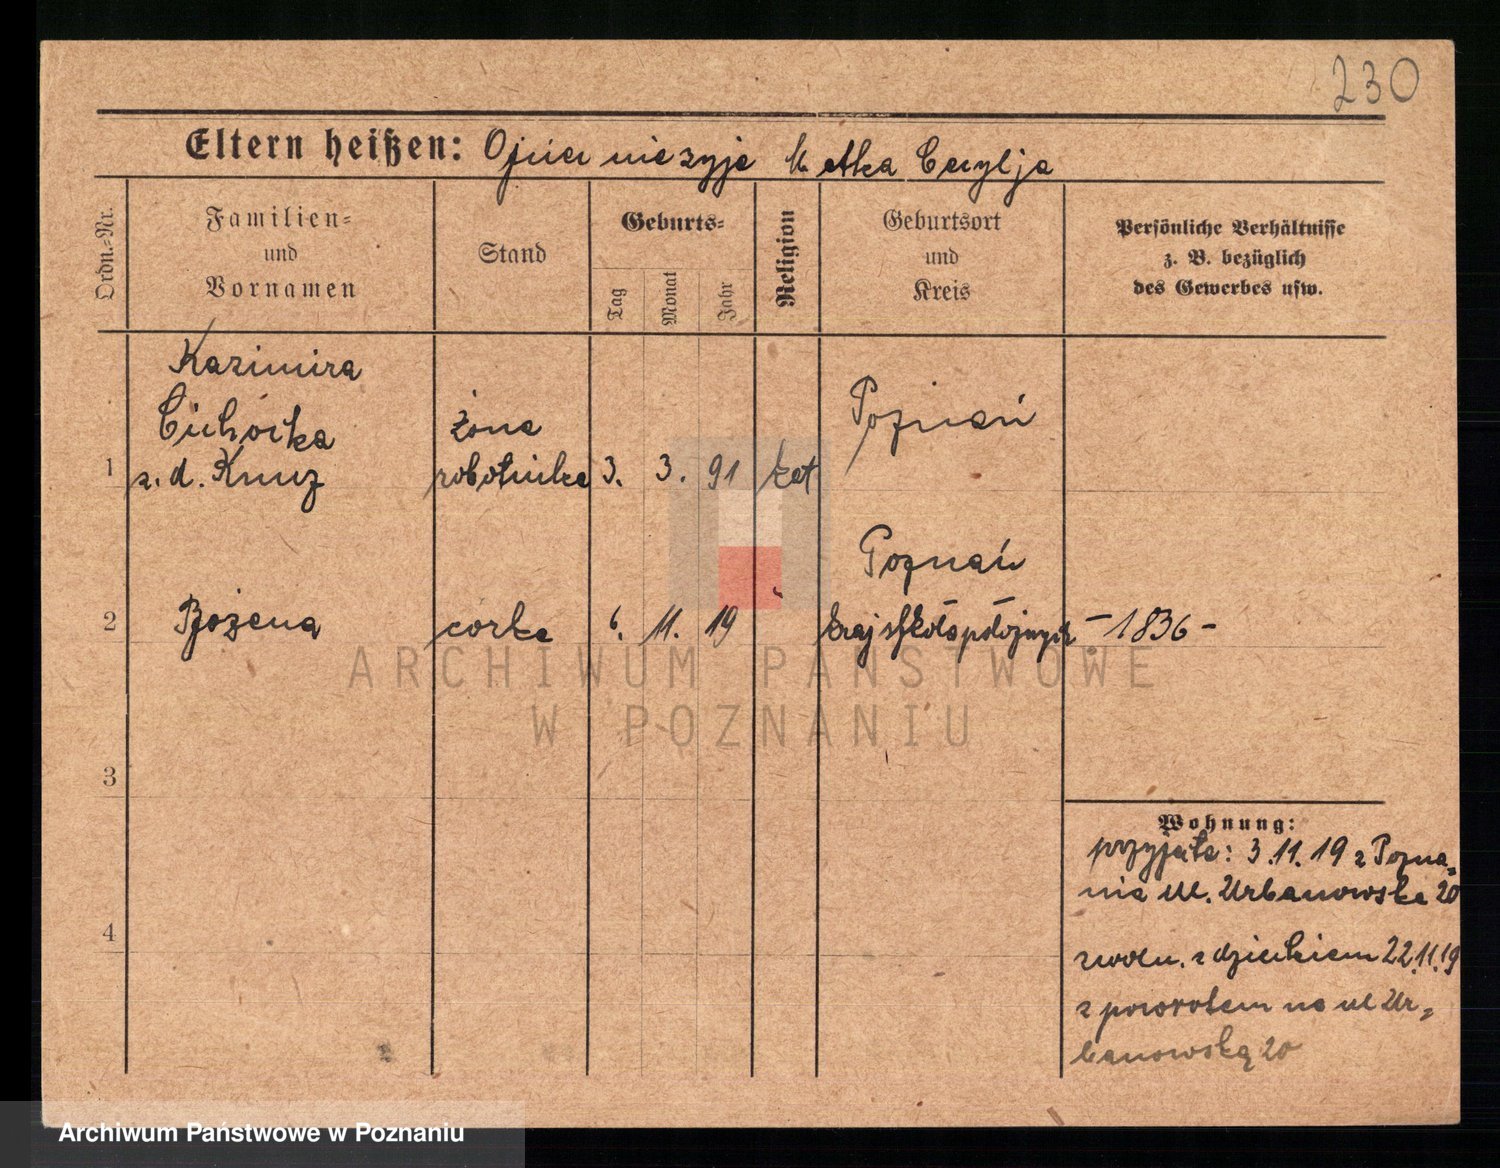 230
Eltern heißen: Ojciec nie żyje Matka Cecylja
Ordn.-Nr.
Familien-
und
Vornamen
Stand
Geburts-
Tag
Monat
Jahr
Religion
Geburtsort
und
Kreis
Persönliche Verhältnisse
z. B. bezüglich
des Gewerbes usw.
Kazimira
Cichocka
z. d. Kmuz
1
żona
robotnika
3. 3. 91
kat
Poznań
2
Bożena
córka
6. 11. 19
Poznań
kraj szkoła położnych
- 1836 -
3
4
Wohnung:
przyjęta: 3.11.19 z Pozna=
nia ul. Urbanowska 20
zwoln. z dzieckiem 22.11.19
z powrotem na ul Ur=
banowską 20
ARCHIWUM PAŃSTWOWE
W POZNANIU
Archiwum Państwowe w Poznaniu